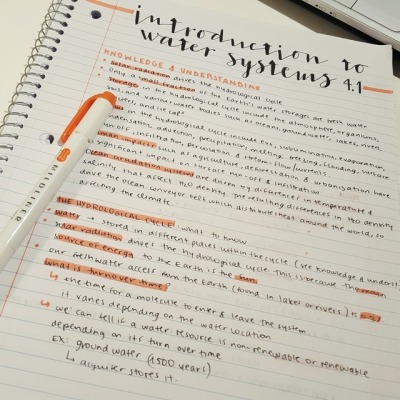 introduction to
water systems 4.1
KNOWLEDGE & UNDERSTANDING
solar radiation drives the hydrological cycle
Only a small fraction of the Earth's water storages are fresh water
storages in the hydrological cycle include the atmosphere, organisms,
soils, and various water bodies such as oceans, ground water, lakes, rivers,
and ice caps
in the hydrological cycle include evt, sublimation, evaporation,
condensation, advection, precipitation, melting, freezing, flooding, surface
run-off, infiltration, percolation & stream flow/currents.
human impacts such as agriculture, deforestation & urbanisation have
significant impact on surface run-off & infiltration
Ocean circulation systems are driven by differences in temperature &
salinity that affect H2O density. The resulting differences in H2O density
drive the ocean conveyor belt which distributes heat around the world, so
affecting the climate.
THE HYDROLOGICAL CYCLE: what to know
water → stored in different pulses within the cycle (see knowledge & underst-
solar radiation drives the hydrological cycle. This is because the main
source of energy to the Earth is the sun.
our freshwater access from the Earth (found in lakes or rivers) is
what is turnover time?
↳ the time for a molecule to enter & leave the system
it varies depending on the water location
↳ we can tell if a water resource is non-renewable or renewable
depending on its turn over time
Ex: ground water (1500 years)
↳ aquifer stores it.
MILDLINER